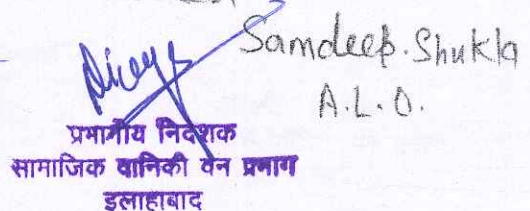 Samdeep. Shukla
A.L.O.
प्रभागीय निदेशक
सामाजिक वानिकी वन प्रभाग
इलाहाबाद